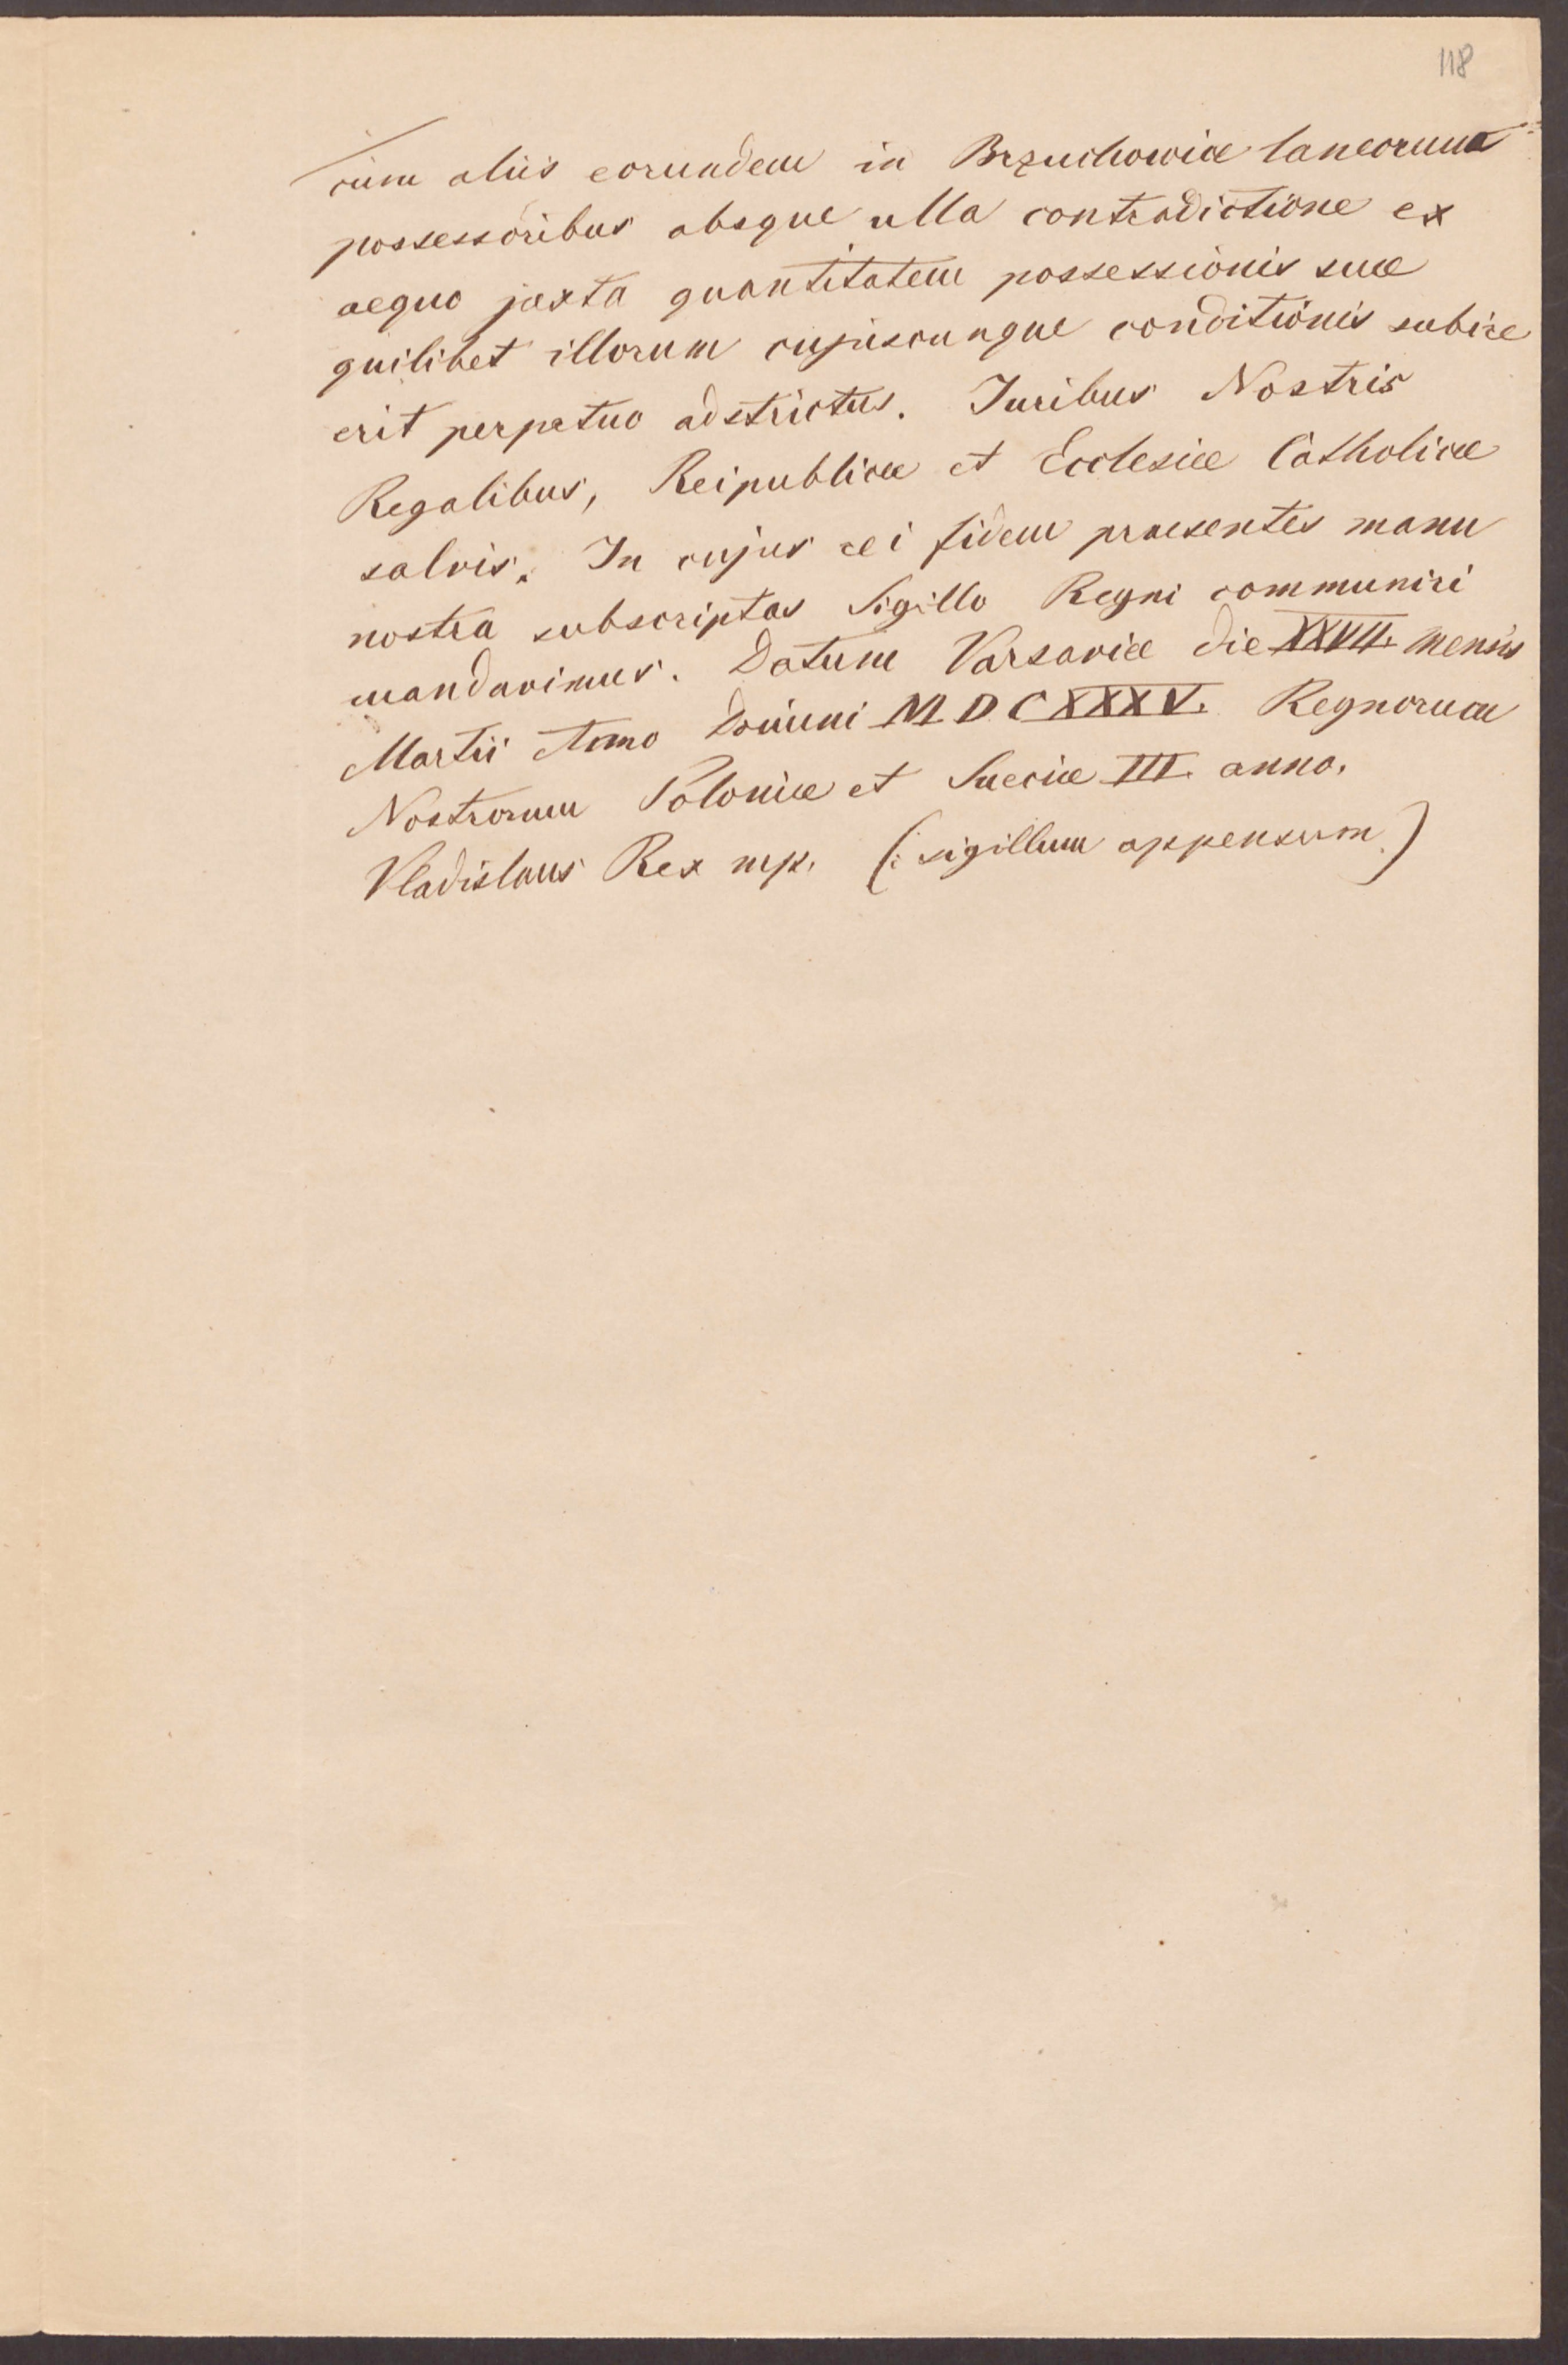 118
cum aliis eorundem in Brzuchowice laneorum
possessoribus absque ulla contradictione ex
aequo juxta quantitatem possessionis suae
quilibet illorum cujuscunque conditionis subire
erit perpetuo adstrictus. Juribus Nostris
Regalibus, Reipublicae et Ecclesiae Catholicae
salvis. In cujus rei fidem praesentes manu
nostra subscriptas Sigillo Regni communiri
mandavimus. Datum Varsaviae die XXVII. mensis
Martii Anno Domini MDCXXXV. Regnorum
Nostrorum Poloniae et Sueciae III. anno.
Vladislaus Rex mp. (: sigillum appensum.)